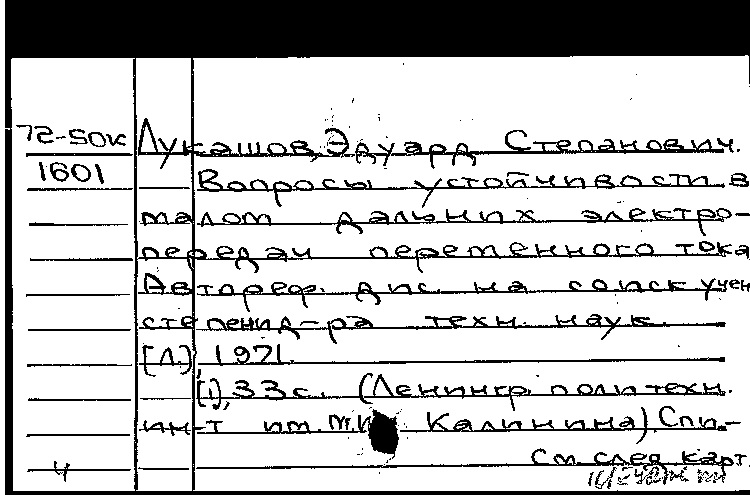 72-50к Лукашов, Эдуард Степанович.
1601 Вопросы устойчивости в
малом дальних электро-
передач переменного тока
Автореф. дис. на соиск учен
степени д-ра техн. наук.
[Л.], 1971.
[1], 33 с. (Ленингр. политехн.
ин-т им. М.И. Калинина). Спи-
4 См. след. карт.